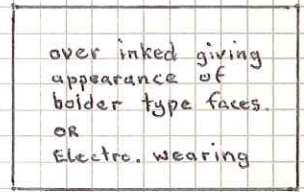 over inked giving
appearance of
bolder type faces.
OR
Electro. wearing